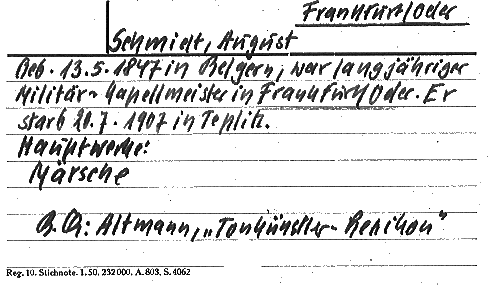 Frankfurt/Oder
Schmidt, August
Geb. 13.5.1847 in Belgern, war langjähriger
Militär-Kapellmeister in Frankfurt/Oder. Er
starb 20.7.1907 in Teplitz.
Hauptwerke:
Märsche
B.Qu: Altmann, „Tonkünstler-Lexikon"
Reg. 10. Stichnote. 1.50. 232000. A. 803. S. 4062